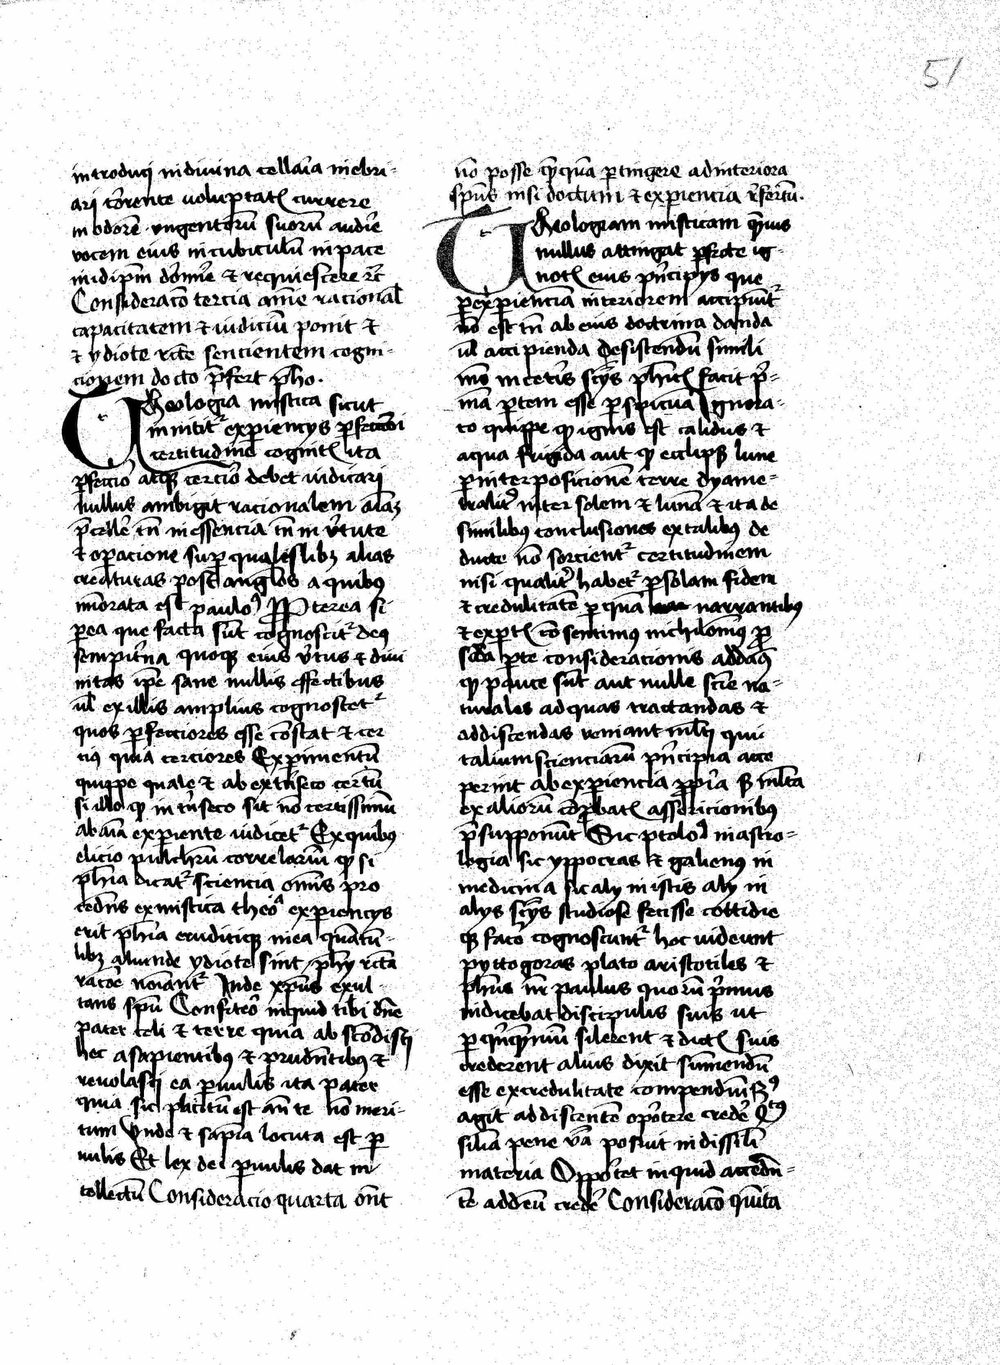 51
introduci in divina cellaria inebri-
ari torrente voluptatis currere
in odorem ungentorum suorum audire
vocem eius in cubiculum in pace
in idipsum dormire et requiescere etc
Consideracio tercia anime racionalis
capacitatem et iudicium ponit et
et ydiote recte sencientem cogni-
cionem docto prefert philosopho.
Theologia mistica sicut
innititur experiencijs perfectiori
certitudine cognitis ita
perfectior atque cercior debet iudicari
nullus ambigit racionalem animam
precellere tam in essencia tam in virtute
et operacione super quaslibet alias
creaturas post angelos a quibus
minorata est paulo Preterea si
per ea que facta sunt cognoscitur deus
sempiterna quoque eius virtus et divi
nitas ipse sane nullis effectibus
vel ex illis amplius cognoscetur
quos perfectiores esse constat et cer
cius quia cerciores Experimentum
quippe quale et ab extrinseco certum
si illo quod intrinseco sit non certissimum
ab anima experiente iudicetur Ex quibus
elicio pulchrum correlarium quod si
philosophia dicatur sciencia omnis pro
cedens ex mistica theologia experiencijs
erit philosophia eruditique in ea quantum-
libet aliunde ydiote sint philosophi recta
racione nominantur Inde christus exul-
tans spiritu Confiteor inquid tibi domine
pater celi et terre quia abscondisti
hec a sapientibus et prudentibus et
revelasti ea parvulis ita pater
quia sic placitum est ante te non meri-
tum Unde et sapiencia locuta est par
vulis Et lex dei parvulis dat in
tellectum Consideracio quarta ostendit
non posse quemquam pertingere ad interiora
spiritus nisi doctum et experiencia refertum.
Theologiam misticam quamvis
nullus attingat perfecte ig-
notis eius principijs que
per experienciam interiorem accipiuntur
non est tamen ab eius doctrina danda
vel accipienda desistendum simili
modo in ceteris scienciis philosophicis facit pri-
mam partem esse perspicuam Ignora-
to quippe quod ignis est calidus et
aqua frigida aut quod eclipsis lune
per interposicionem terre dyame-
traliter inter solem et lunam et ita de
similibus conclusiones ex talibus de
ducte non sorcientur certitudinem
nisi qualiter habetur per solam fidem
et credulitatem per quam narrantibus
et expertis consentimus nichilominus pro
secunda parte consideracionis addamus
quod pauce sunt aut nulle sciencie na-
turales ad quas tractandas et
addiscendas veniant multi qui
talium scienciarum principia acce
perint ab experiencia propria sed multa
ex aliorum comprobatis assercionibus
presupponunt Sic ptolomeus in astro-
logia sic yppocras et galienus in
medicina sic alij in istis alij in
alijs scienciis studiose fecisse cottidie
qui facto cognoscuntur hoc viderunt
pyttogoras plato aristotiles et
philosophus noster paulus quorum primus
indicebat discipulis suis ut
per quinquennium silerent et dictis suis
crederent alius dixit sumendum
esse ex credulitate compendium Secundus
agit addiscentem oportere credere Tercius
similia pene verba posuit in dissimili
materia Opportet inquid acceden-
tem ad deum credere Consideracio quinta